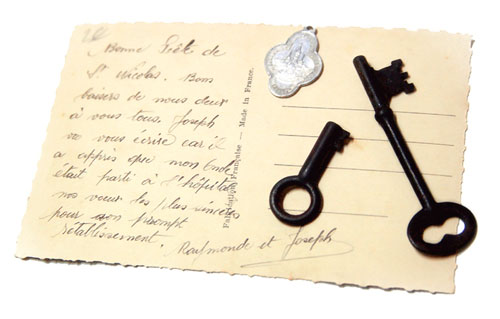 Bonne Fête de
St Nicolas. Bons
baisers de nous deux
à vous tous. Joseph
va vous écrire car il
a appris que mon Oncle
était parti à l'hôpital
nos voeux les plus sincères
pour son prompt
rétablissement.
Raymonde et Joseph
Fabrication Française — Made in France.